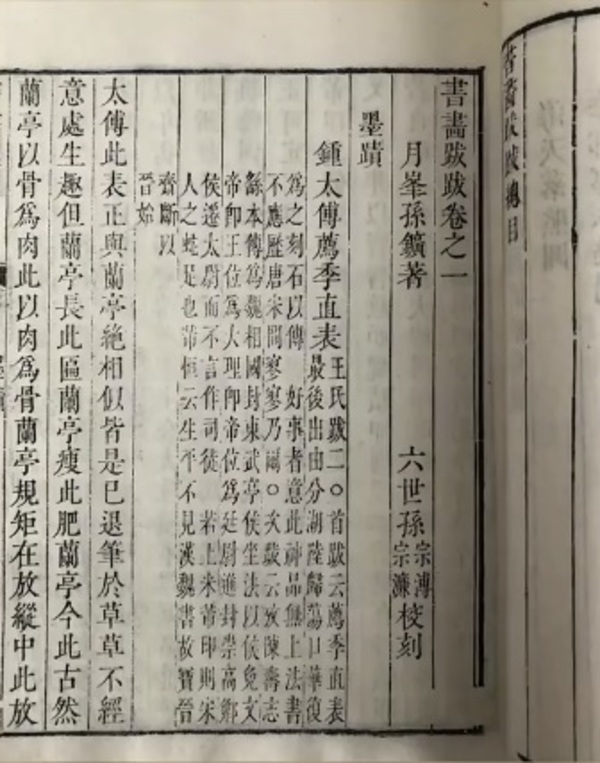 書畫跋跋總目
書畫跋跋卷之一
月峯孫鑛著 六世孫宗溥宗濂校刻
墨蹟
鍾太傅薦季直表 王氏跋二○首跋云薦季直表
最後出由分湖陸歸蕩口華復
爲之刻石以傳 好事者意此神品無上法書
不應歷唐宋間寥寥乃爾○次跋云攷陳壽志
繇本傳爲魏相國封東武亭侯坐法以侯免文
帝卽王位爲大理卽帝位爲廷尉進封崇高鄉
侯遷太尉而不言作司徒 若上米芾印則宋
人之蛙是也芾恒云生平不見漢魏書故寶晉
齋斷以
晉始
太傅此表正與蘭亭絕相似皆是已退筆於草草不經
意處生趣但蘭亭長此區蘭亭瘦此肥蘭亭今此古然
蘭亭以骨爲肉此以肉爲骨蘭亭規矩在放縱中此放